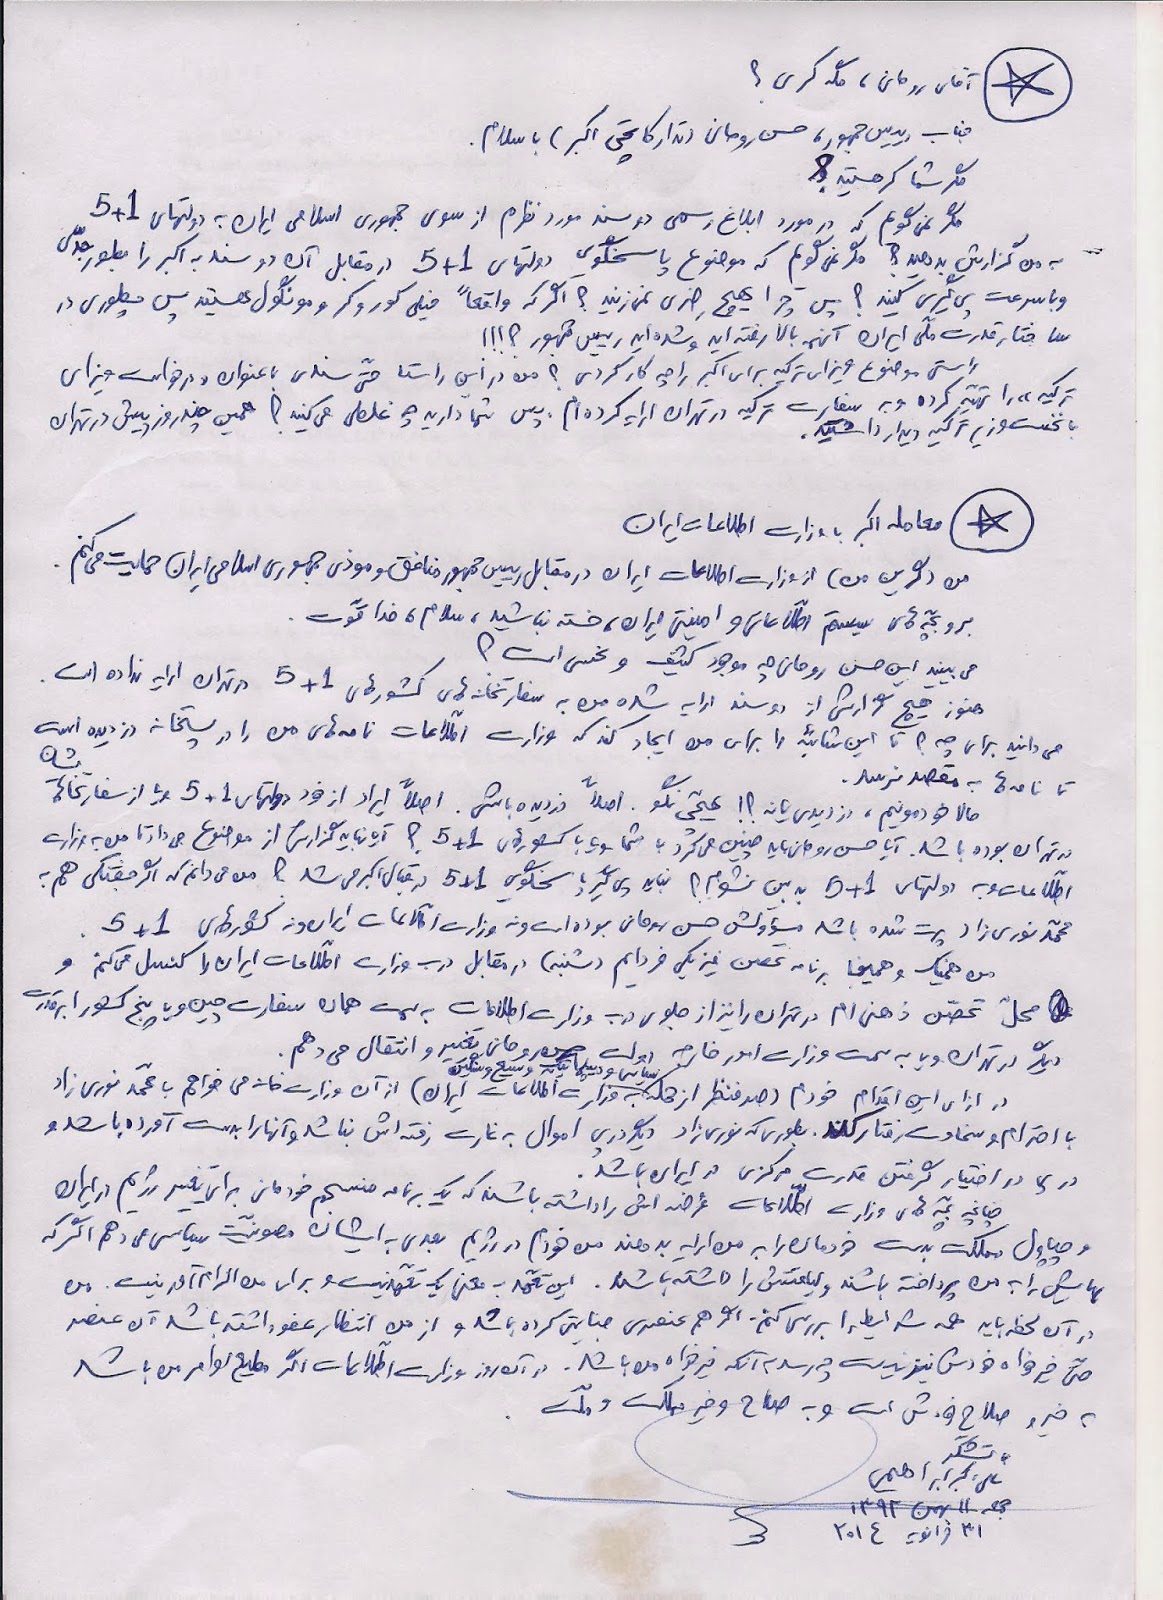 آقای روحانی، مگه کری؟
جناب رییس جمهور، حسن روحانی (تدارکاتچی اکبر) با سلام.
مگر شما کر هستید؟
مگر نمی‌گویم که در مورد ابلاغ رسمی دو سند مورد نظرم از سوی جمهوری اسلامی ایران به دولتهای 5+1
به من گزارش بدهید؟ مگر نمی‌گویم که موضوع پاسخگویی دولتهای 5+1 در مقابل آن دو سند به اکبر را بطور جدّی
و با سرعت پی‌گیری کنید؟ پس چرا هیچ حرفی نمی‌زنید؟ اگر که واقعاً خیلی کور و کر و مونگول هستید پس چطوری در
ساختار قدرت ملّی ایران آنهمه بالا رفته‌اید و شده‌اید رییس جمهور؟!!!
راستی موضوع ویزای ترکیه برای اکبر را چه کار کردی؟ من در این راستا حتّی سندی با عنوان «درخواست ویزای
ترکیه» را تهیّه کرده و به سفارت ترکیه در تهران ارایه کرده‌ام. پس شما دارید چه غلطی می‌کنید؟ همین چند روز پیش در تهران
با نخست وزیر ترکیه دیدار داشتید.
معامله اکبر با وزارت اطلاعات ایران
من (گرین من) از وزارت اطلاعات ایران در مقابل رییس جمهور منافق و موذی جمهوری اسلامی ایران حمایت می‌کنم.
برو بچّه‌های سیستم اطّلاعاتی و امنیتی ایران، خسته نباشید، سلام، خدا قوّت.
می‌بینید این حسن روحانی چه موجود کثیف و نحسی است؟
هنوز هیچ گزارشی از دو سند ارایه شده من به سفارتخانه‌های کشورهای 5+1 در تهران ارایه نداده است.
می‌دانید برای چه؟ تا این شائبه را برای من ایجاد کند که وزارت اطّلاعات نامه‌های من را در پستخانه دزدیده است
تا نامه‌ها به مقصد نرسد.
حالا خودمونیم، دزدیدی یا نه؟!! هیچّی نگو. اصلاً دزدیده باشی. اصلاً ایراد از خود دولتهای 5+1 و یا از سفارتخانه‌های
شان
در تهران بوده باشد. آیا حسن روحانی باید چنین می‌کرد با شما و یا با کشورهای 5+1؟ آیا نباید گزارش از موضوع می‌داد تا من به وزارت
اطّلاعات و به دولتهای 5+1 بدبین نشوم؟ نباید پی‌گیر پاسخگویی 5+1 در قبال اکبر می‌شد؟ من می‌دانم که اگر جفتکی هم به
محمّد نوری‌زاد پرت شده باشد مسؤولش حسن روحانی بوده است و نه وزارت اطّلاعات ایران و نه کشورهای 5+1.
من همینک و همینجا برنامه تحصّن فیزیکی فردایم (شنبه) در مقابل درب وزارت اطّلاعات ایران را کنسل می‌کنم و
محلّ تحصّن ذهنی‌ام در تهران را نیز از جلوی درب وزارت اطلاعات به سمت همان سفارت چین و یا پنج کشور ابرقدرت
دیگر در تهران و یا به سمت وزارت امور خارجه دولت حسن روحانی تغییر و انتقال می‌دهم.
سیاسی و دیپلماتیک وسیع و سنگین
در ازای این اقدام خودم (صرفنظر از حمله به وزارت اطلاعات ایران) از آن وزارتخانه می‌خواهم با محمّد نوری زاد
با احترام و سخاوت رفتار کند. بطوری که نوری‌زاد دیگر در پی اموال به غارت رفته‌اش نباشد و آنها را بدست آورده باشد و
در پی در اختیار گرفتن قدرت مرکزی در ایران باشد.
چنانچه بچّه‌های وزارت اطّلاعات عُرضه‌اش را داشته باشند که یک برنامه منسجم خودمانی برای تغییر رژیم در ایران
و چپاول مملکت بدست خودمان را به من ارایه بدهند من خودم در رژیم بعدی به ایشان مصونیّت سیاسی می‌دهم اگر که
بهایش را به من پرداخته باشند و لیاقتش را داشته باشند. این تعهّد به معنای یک تعهّد نیست و برای من الزام آور نیست. من
در آن لحظه باید همه شرایط را بررسی کنم. اگر هم عنصری جنایتی کرده باشد و از من انتظار عفو داشته باشد آن عنصر
حتّی خیرخواه خودش نیز نیست چه رسد به آنکه خیرخواه من باشد. در آن روز وزارت اطّلاعات اگر مطیع اوامر من باشد
به خیر و صلاح خودش است و به صلاح و خیر مملکت و ملّت.
با تشکّر
علی اکبر ابراهیمی
جمعه ۱۱ بهمن ۱۳۹۲
۳۱ ژانویه ۲۰۱۴